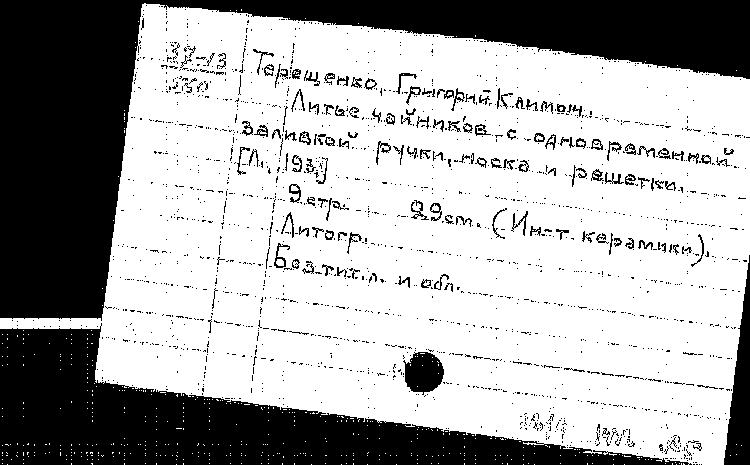 37-13
550
Терещенко, Григорий Климыч.
Литье чайников с одновременной
заливкой ручки, носка и решетки.
[Л., 193
9 стр. 29 см. (Ин-т керамики).
Литогр.
Без тит. л. и обл.